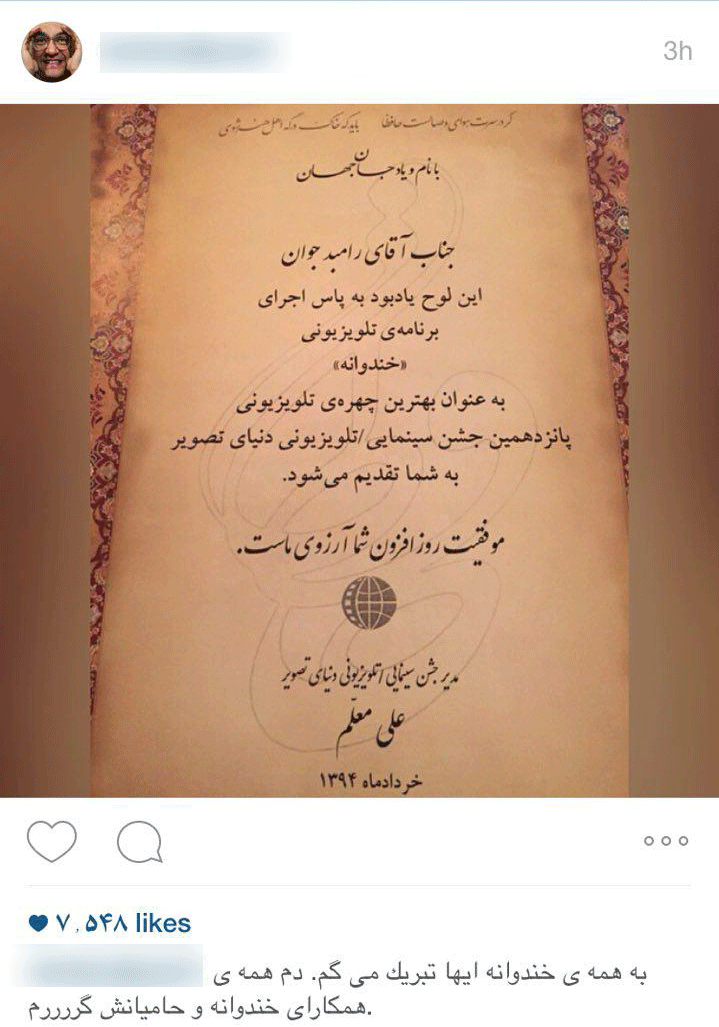 3h
گر در سرت هوای وصالست حافظا باید که خاک درگه اهل هنر شوی
با نام و یاد جان جهان
جناب آقای رامبد جوان
این لوح یادبود به پاس اجرای
برنامه‌ی تلویزیونی
«خندوانه»
به عنوان بهترین چهره‌ی تلویزیونی
پانزدهمین جشن سینمایی/تلویزیونی دنیای تصویر
به شما تقدیم می‌شود.
موفقیت روز افزون شما آرزوی ماست.
مدیر جشن سینمایی/تلویزیونی دنیای تصویر
علی معلّم
خردادماه ۱۳۹۴
۷,۵۴۸ likes
به همه ی خندوانه ایها تبریك می گم. دم همه ی
همکارای خندوانه و حامیانش گررررم.